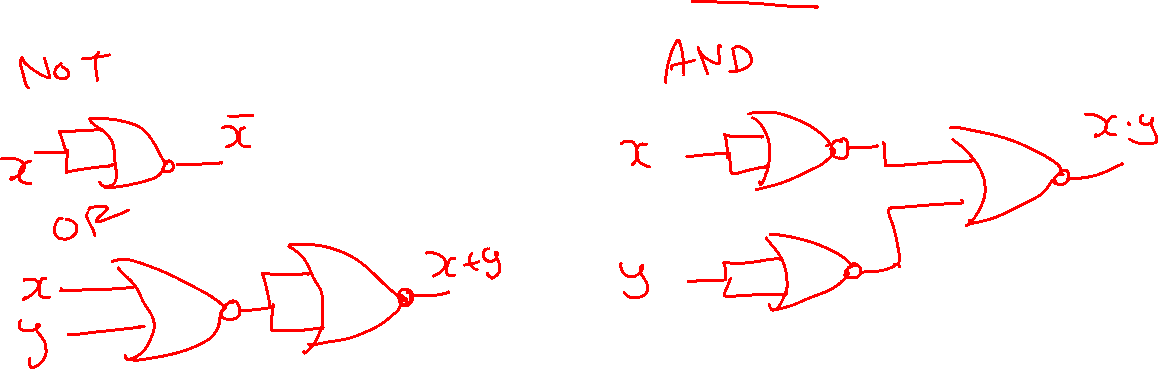 NOT
x
x̄
OR
x
y
x+y
AND
x
y
x·y